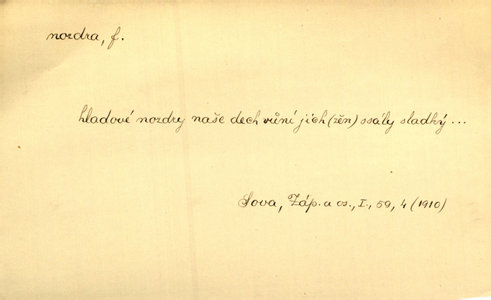 nozdra, f.
hladové nozdry naše dech vůní jich (žen) ssály sladký...
Sova, Záp. a cs., I., 59, 4 (1910)